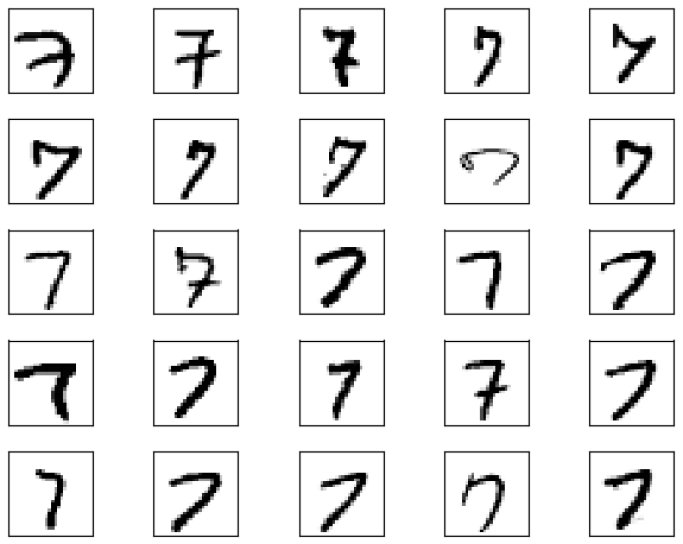 7 7 7 7 7
7 7 7 7 7
7 7 7 7 7
7 7 7 7 7
7 7 7 7 7